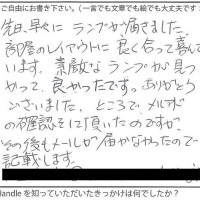 ご自由にお書き下さい。(一言でも文章でも絵でも大丈夫です
先日、早々に ランプが届きました。
部屋のレイアウトに 良く合って喜んで
います。素敵な ランプが見つ
かって、良かったです。ありがとう
ございました。ところで メルマガ
の確認をして頂いたのですが、
その後もメールが届かなかったので
記載します。
Handle を知っていただいたきっかけは何でしたか?